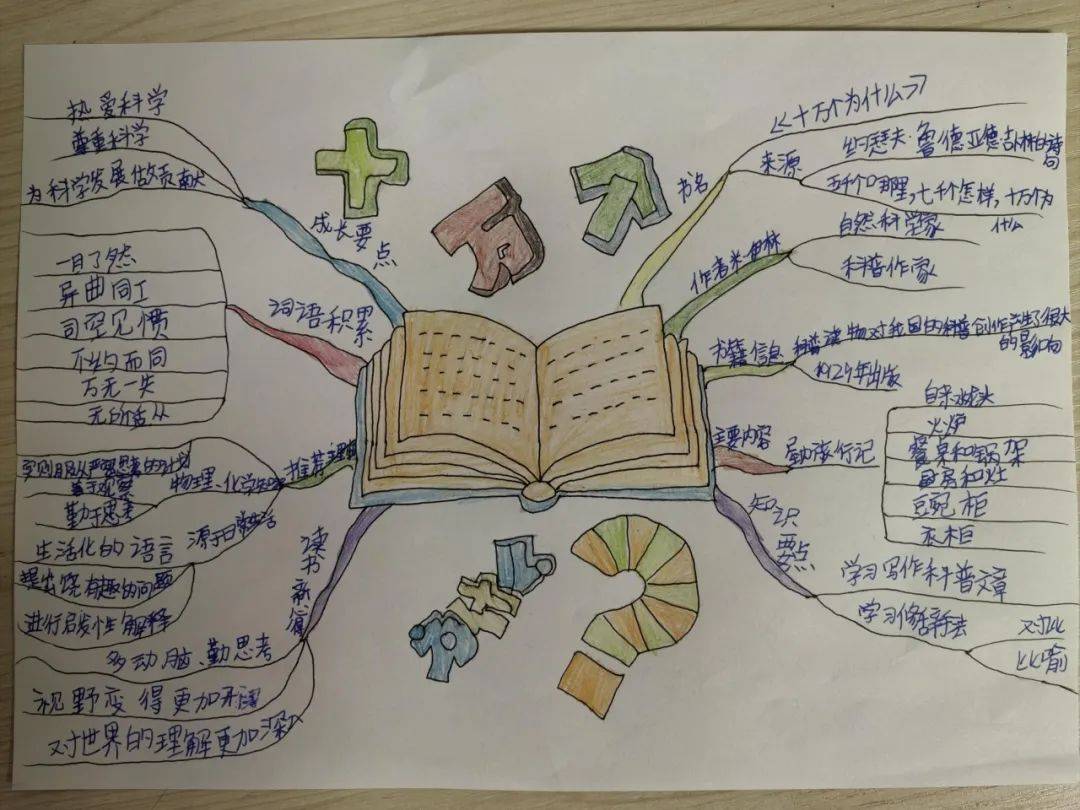 热爱科学
尊重科学
为科学发展做贡献
成长要点
一目了然
异曲同工
司空见惯
不约而同
万无一失
无所适从
词语积累
推荐理由
物理、化学知识
善于观察
勤于思考
源于日常生活
生活化的语言
提出饶有趣的问题
进行启发性解释
读书
多动脑、勤思考
视野变得更加开阔
对世界的理解更加深
十万个为什么
书名
《十万个为什么》
来源
约瑟夫·鲁德亚德·吉卜林的诗句
五千个哪里,七千个怎样,十万个为
什么
作者米·伊林
自然科学家
科普作家
书籍信息
科普读物对我国的科普创作产生了很大
的影响
1929年出版
主要内容
自来水龙头
火炉
餐桌和锅架
厨房和灶
碗柜
衣柜
知识
要点
学习写作科普文章
学习修辞手法
对比
比喻